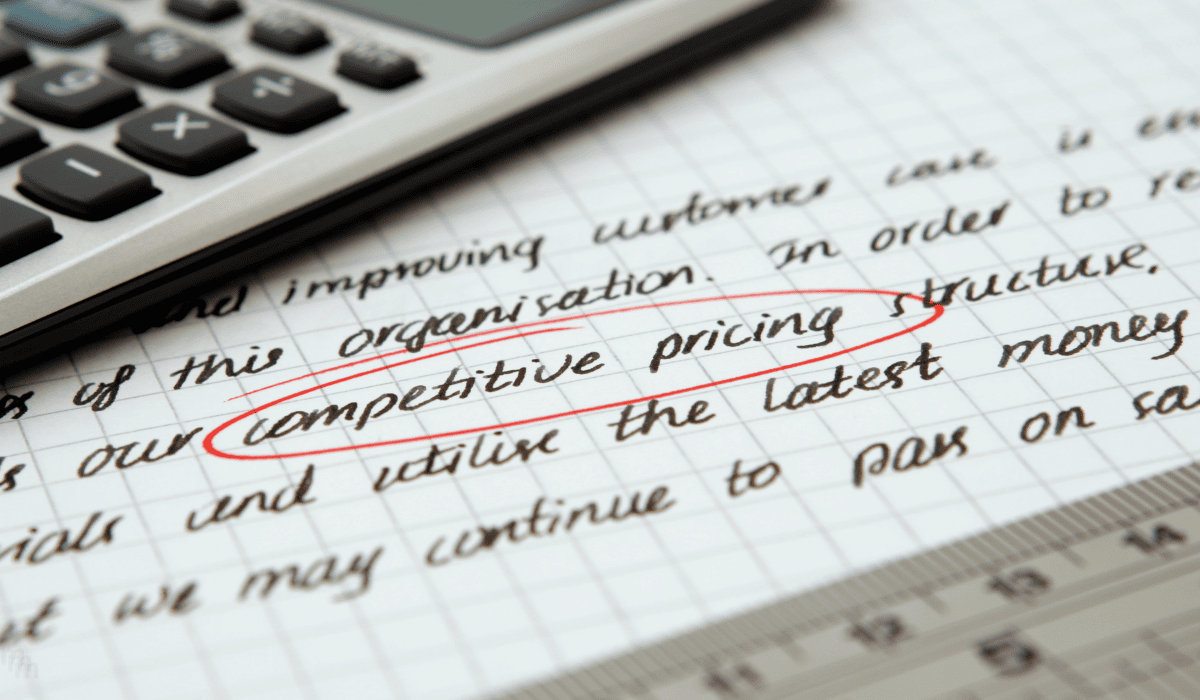 %
9 ÷
×
−
and improving customer care is
of this organisation. In order to
our competitive pricing structure.
and utilise the latest money
we may continue to pass on
11 12 13 14
5